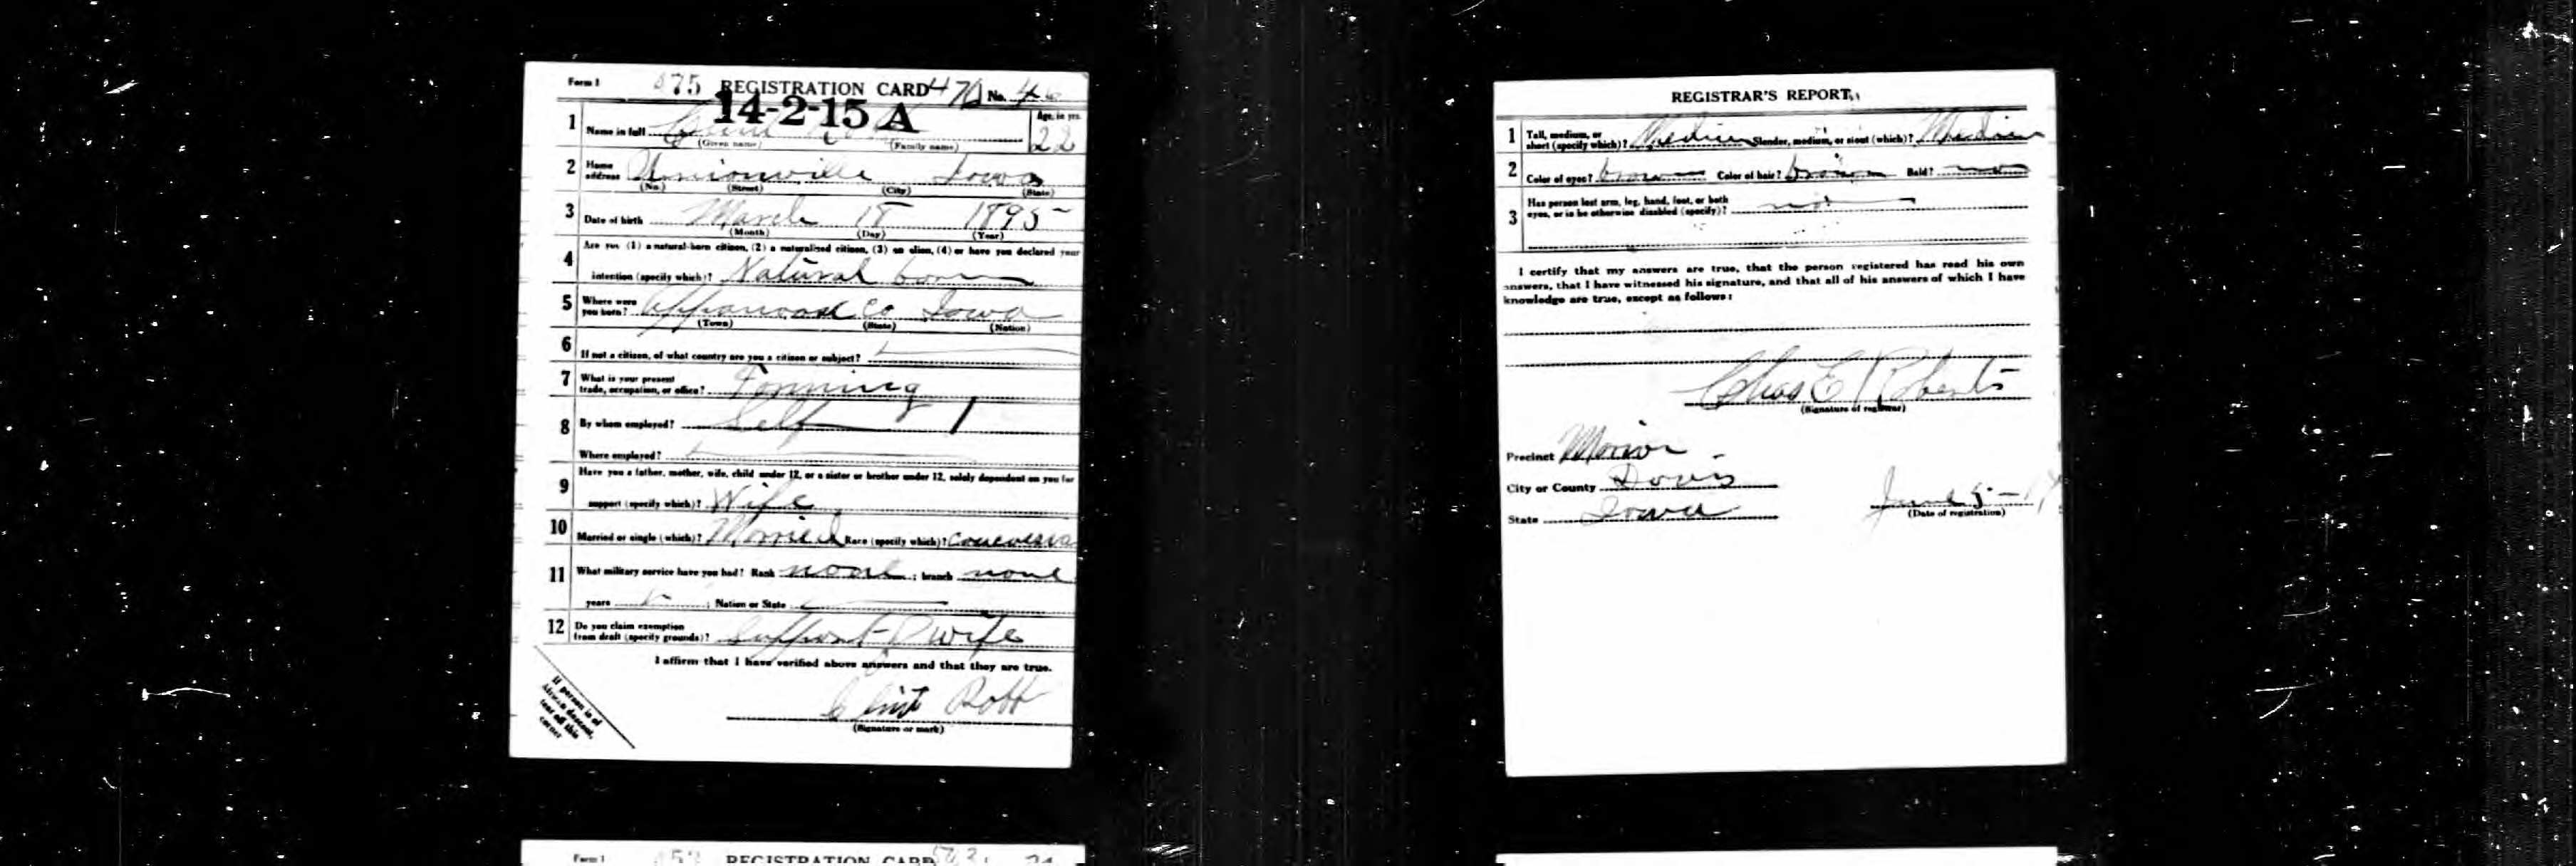 Form 1 475 REGISTRATION CARD 470 No.
14-2-15 A
1 Name in full Age, in yrs.
(Given name) (Family name) 22
2 Home address Unionville Iowa
(No.) (Street) (City) (State)
3 Date of birth March 18 1895
(Month) (Day) (Year)
4 Are you (1) a natural-born citizen, (2) a naturalized citizen, (3) an alien, (4) or have you declared your
intention (specify which)? Natural born
5 Where were you born? Appanoose Co Iowa
(Town) (State) (Nation)
6 If not a citizen, of what country are you a citizen or subject?
7 What is your present trade, occupation, or office? Farming
8 By whom employed? Self
Where employed?
9 Have you a father, mother, wife, child under 12, or a sister or brother under 12, solely dependent on you for
support (specify which)? Wife
10 Married or single (which)? Married Race (specify which)?
11 What military service have you had? Rank none ; branch none
years ; Nation or State
12 Do you claim exemption from draft (specify grounds)? Support of wife
I affirm that I have verified above answers and that they are true.
Clint Robb
(Signature or mark)
If person is of
African descent,
tear off this
corner
REGISTRAR'S REPORT
1 Tall, medium, or short (specify which)? Medium Slender, medium, or stout (which)? Medium
2 Color of eyes? brown Color of hair? brown Bald? no
3 Has person lost arm, leg, hand, foot, or both
eyes, or is he otherwise disabled (specify)? no
I certify that my answers are true, that the person registered has read his own
answers, that I have witnessed his signature, and that all of his answers of which I have
knowledge are true, except as follows:
Chas E Roberts
(Signature of registrar)
Precinct
City or County Davis
State Iowa June 5 - 17
(Date of registration)
Form 1 REGISTRATION CARD